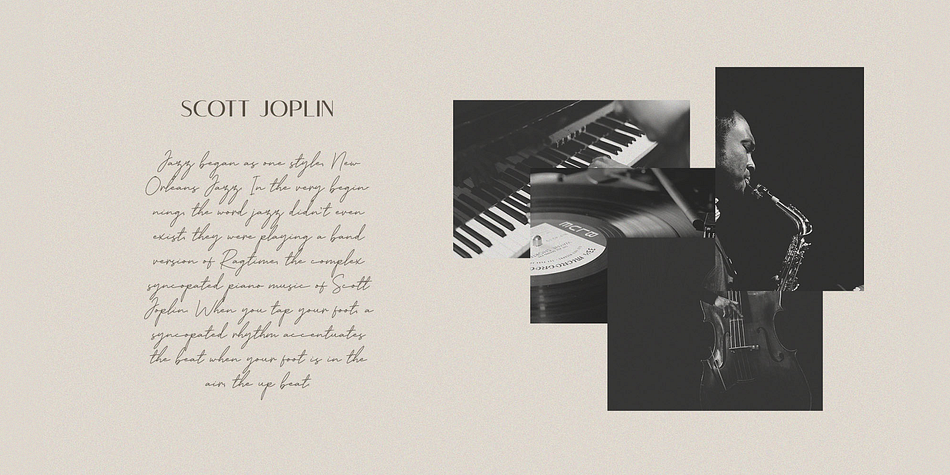 SCOTT JOPLIN
Jazz began as one style, New
Orleans Jazz. In the very begin
ning, the word jazz didn't even
exist, they were playing a band
version of Ragtime, the complex
syncopated piano music of Scott
Joplin. When you tap your foot, a
syncopated rhythm accentuates
the beat when your foot is in the
air, the up beat.
mcra
MICROGROO